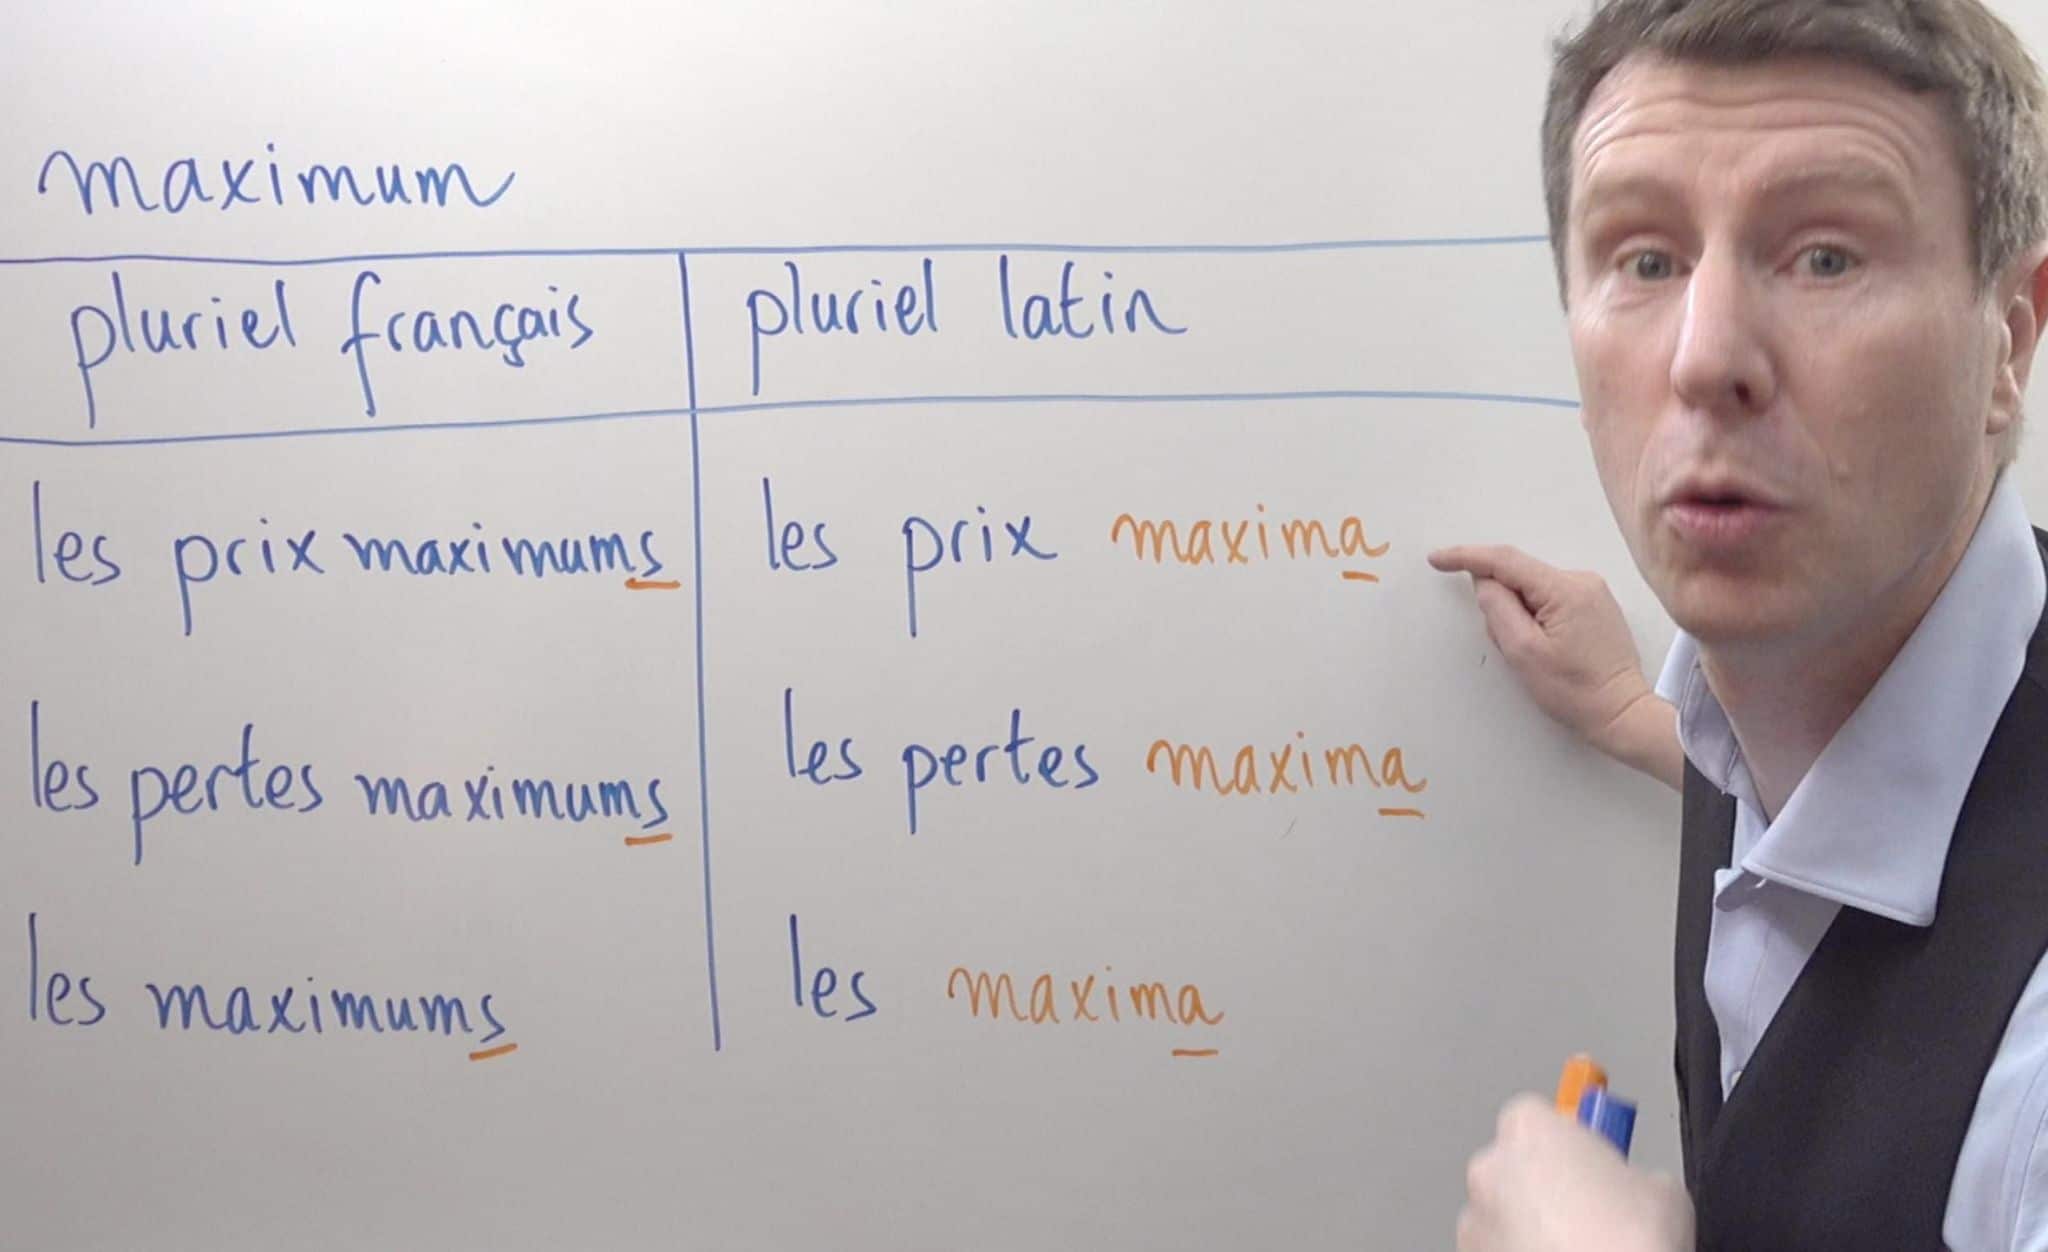 maximum
pluriel français
pluriel latin
les prix maximums
les prix maxima
les pertes maximums
les pertes maxima
les maximums
les maxima